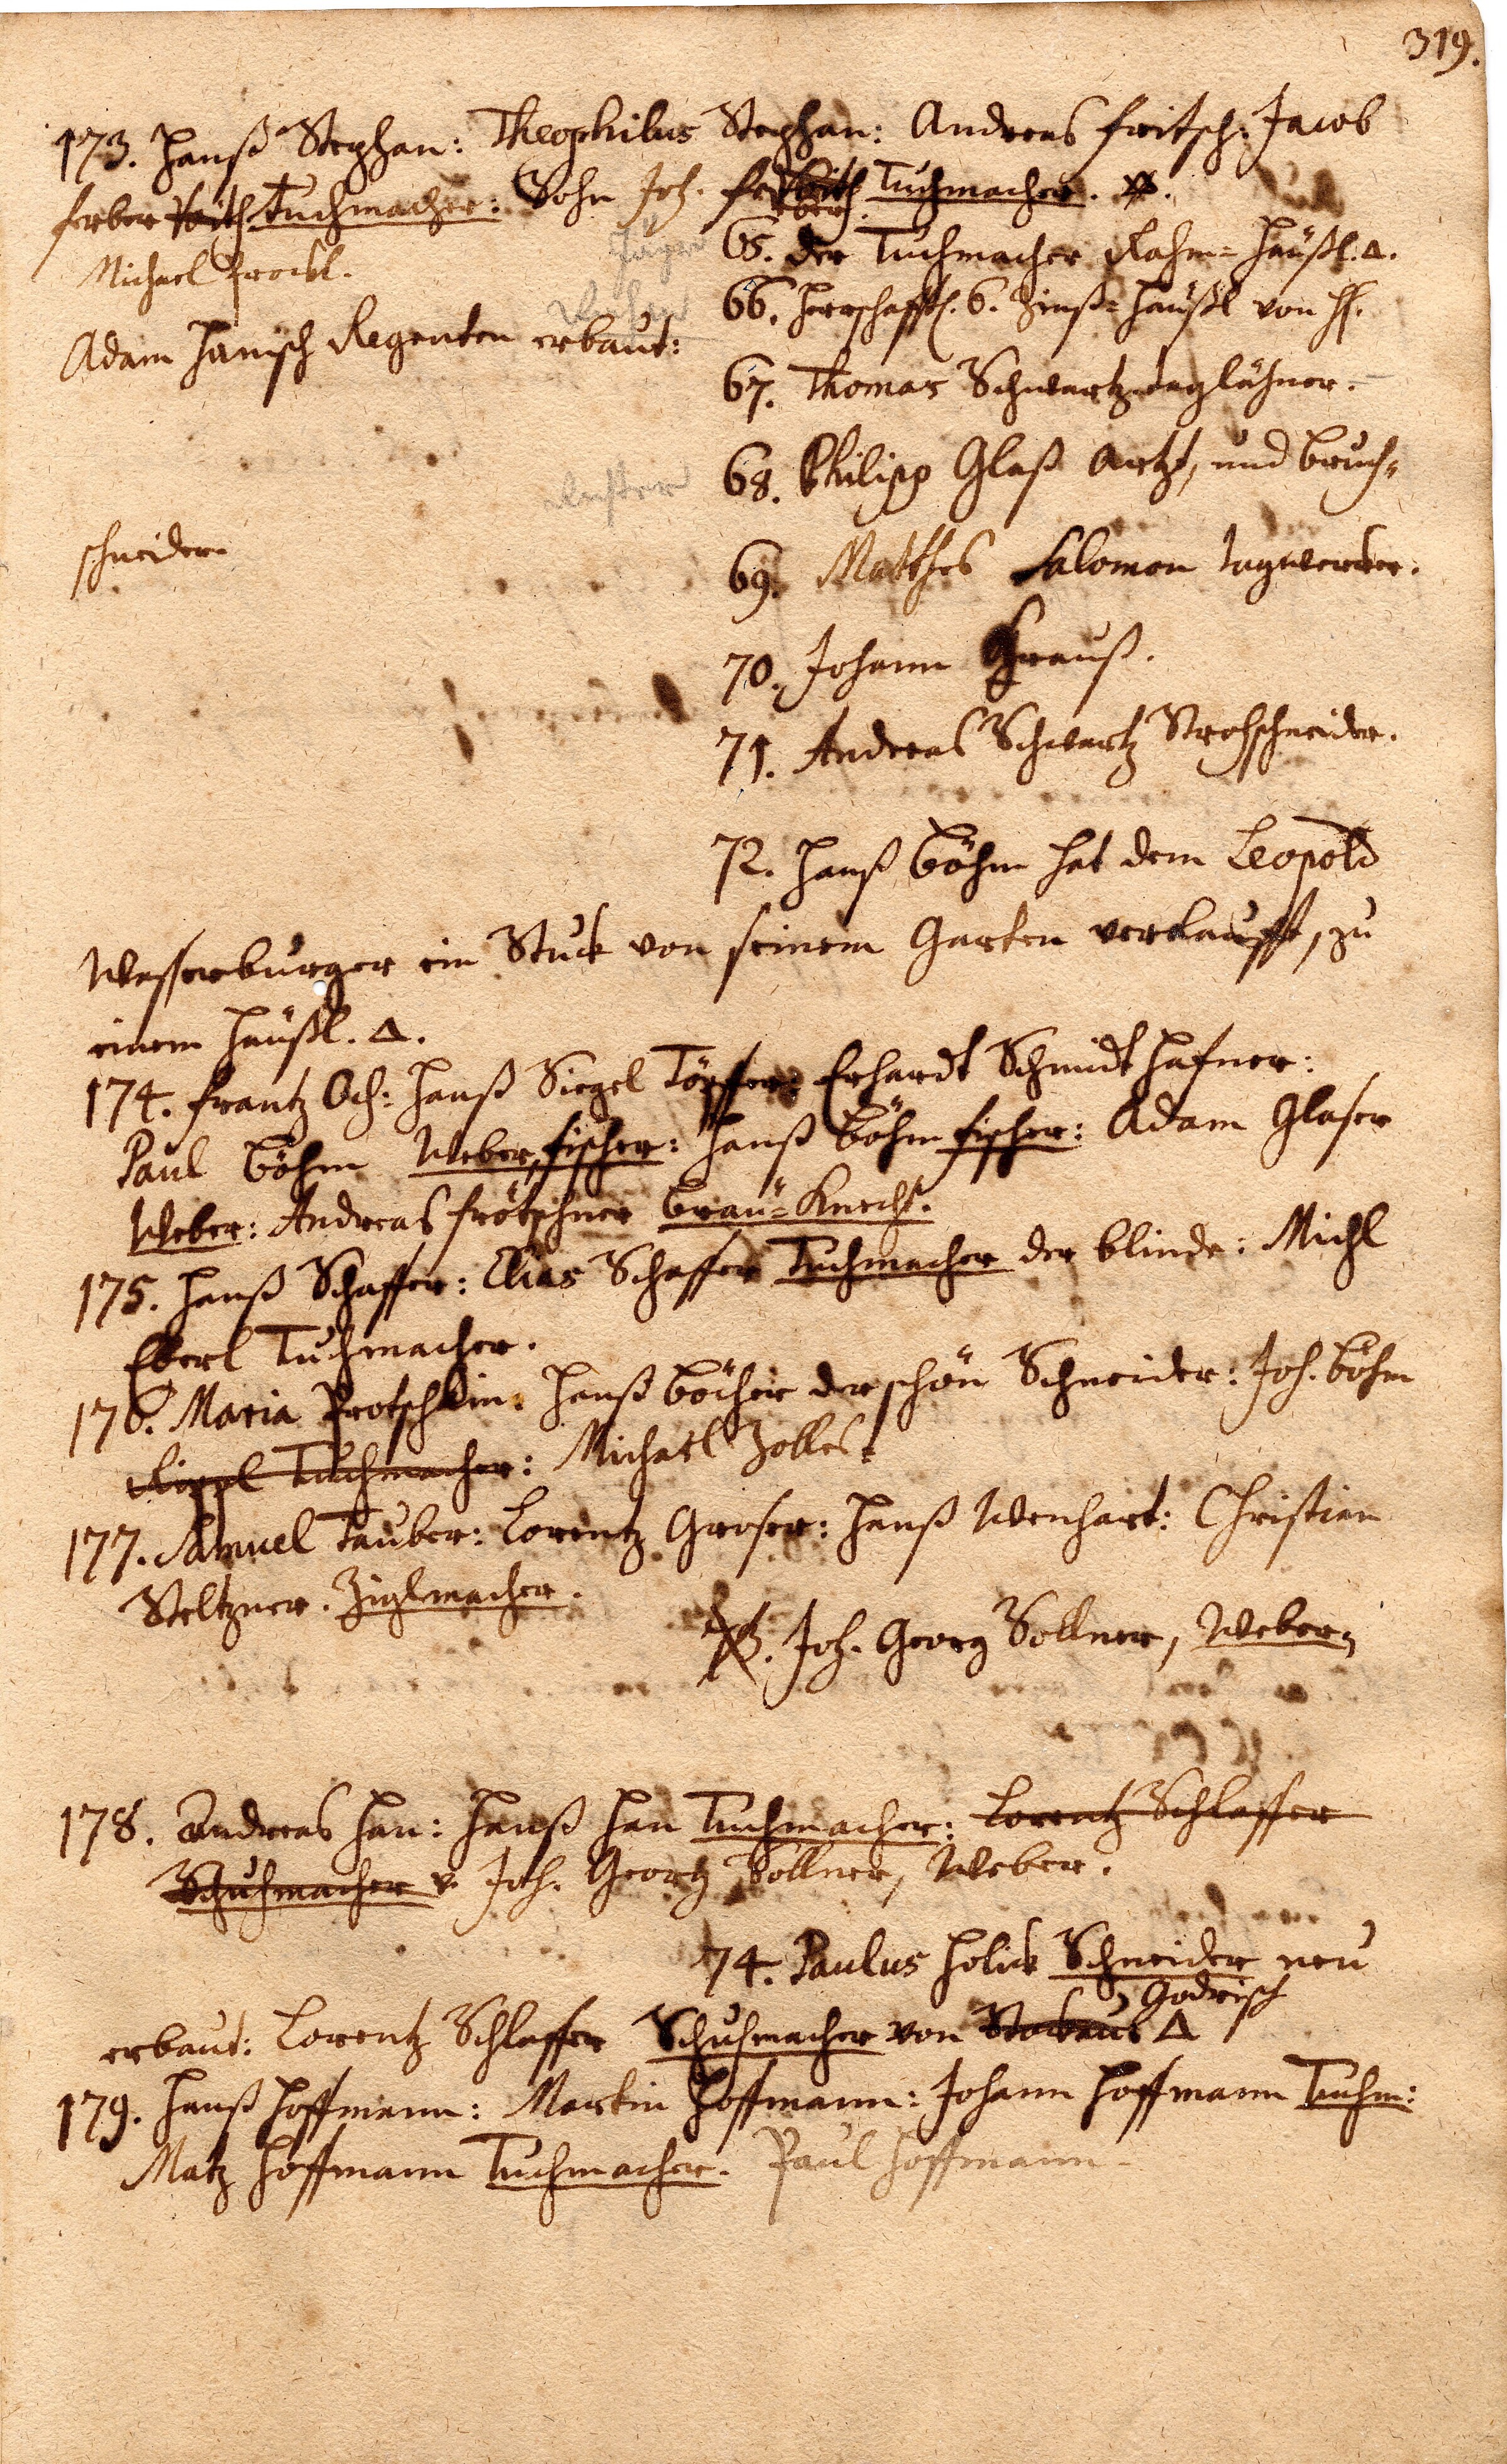 319.
173. Hanß Stephan: Theophilus Stephan: Andreas Fritsch: Jacob
Ferber Tuchmacher: Sohn Joh. Tuchmacher.
65. der Tuchmacher Rahm=Häußl. Δ.
Michael Prockl.
66. Herrschafftl. 6. Zinß=Häußl von H.
Adam Hanisch Regenten erbaut:
67. Thomas Schwartz taglöhner.
68. Philipp Glaß Artzt, und Bruch=
schneider.
69. Matthes Salomon tagwercker.
70. Johann Grauß.
71. Andreas Schwartz Strohschneider.
72. Hanß Böhm hat dem Leopold
Wasserburger ein Stuck von seinem Garten verkaufft, zu
einem Häußl. Δ.
174. Frantz Och: Hanß Siegel Töpffer: Erhardt Schmidt Hafner:
Paul Böhm Weber, Fischer: Hanß Böhm Fischer: Adam Glaser
Weber: Andreas Frötschner Bräu=Knecht.
175. Hanß Schaffer: Elias Schaffer Tuchmacher der blinde: Michl
Eberl Tuchmacher.
176. Maria Protschkin: Hanß Böcher der schön Schneider: Joh. Böhm
Rippl Tuchmacher: Michael Zolles
177. Samuel Tauber: Lorentz Groser: Hanß Wenhart: Christian
Steltzner. Ziglmacher.
73. Joh. Georg Sollner, Weber,
178. Andreas Han: Hanß Han Tuchmacher: Lorentz Schlaffer
Schuhmacher v. Joh. Georg Sollner, Weber.
74. Paulus Holick Schneider neu
Godrisch
erbaut: Lorentz Schlaffer Schuhmacher von Δ
179. Hanß Hoffmann: Martin Hoffmann: Johann Hoffmann Tuchm:
Matz Hoffmann Tuchmacher. Paul Hoffmann